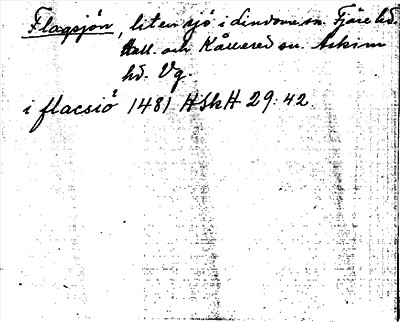 Flagsjön, liten sjö i Lindome sn. Fjäre hd.
Hall. och Kållered sn. Askim
hd. Vg.
i flacsiö 1481 HSkH 29:42.